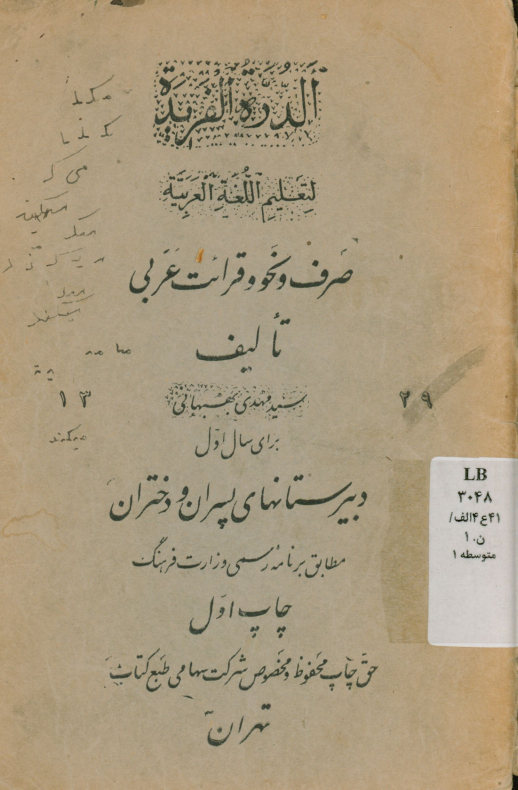 الدرة الفریدة
لتعلیم اللغة العربیة
صرف و نحو و قرائت عربی
تألیف
۱۳ سید مهدی بهبهانی ۲۹
برای سال اول
دبیرستانهای پسران و دختران
مطابق برنامه رسمی وزارت فرهنگ
چاپ اول
حق چاپ محفوظ و مخصوص شرکت سهامی طبع کتاب
تهران
LB
۳۰۴۸
/۴۱ع۴الف
ن.۱
متوسطه ۱
میکند